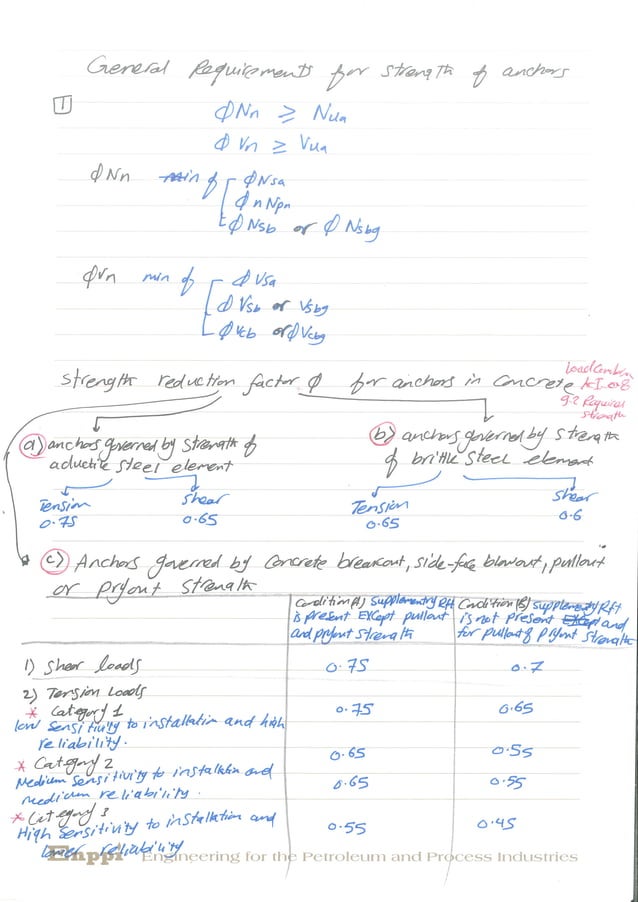 General Requirements for strength of anchors
1
ϕNn ≥ Nua
ϕ Vn ≥ Vua
ϕNn min of ϕNsa
ϕ n Npn
ϕNsb or ϕ Nsbg
ϕVn min of ϕ Vsa
ϕ Vsb or Vsbg
ϕVcb or ϕVcbg
Strength reduction factor ϕ for anchors in Concrete
ACI 08
9.2 Required
strength
a) anchors governed by strength of
a ductile steel element
Tension
0.75
Shear
0.65
b) anchors governed by strength
of brittle steel element
Tension
0.65
Shear
0.6
c) Anchors governed by Concrete breakout, side-face blowout, pullout
or pryout strength
Condition (A) Supplementry Rft
is present Except pullout
and pryout strength
Condition (B) Supplementry Rft
is not present Except and
for pullout & pryout strength
1) Shear loads 0.75 0.7
2) Tension Loads
* Category 1 0.75 0.65
low sensitivity to installation and high
reliability.
* Category 2 0.65 0.55
Medium sensitivity to installation and 0.65 0.55
medium reliability.
* Category 3
High sensitivity to installation and 0.55 0.45
lower reliability
Enppi Engineering for the Petroleum and Process Industries